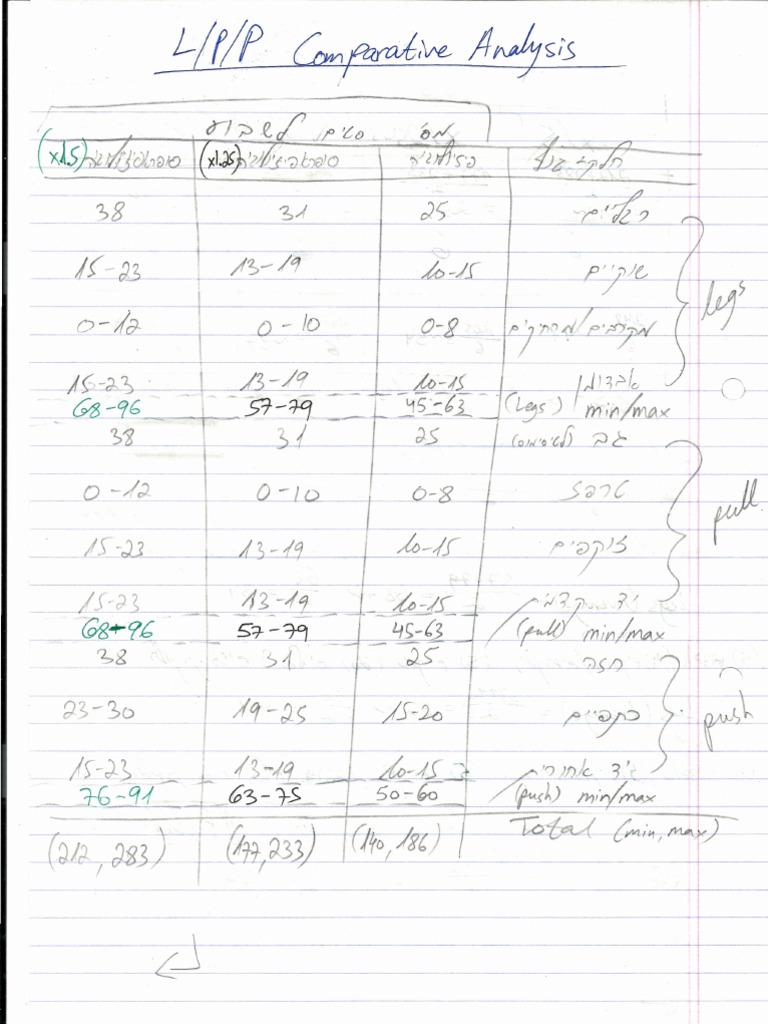 L/P/P Comparative Analysis
מס' סטים לשבוע
חלקי גוף פיזיולוגיה סופרפיזיולוגיה (x1.25) סופרפיזיולוגיה (x1.5)
רגליים 25 31 38
שוקיים 10-15 13-19 15-23
legs
מקרבים/מרחיקים 0-8 0-10 0-12
אבדומן 10-15 13-19 15-23
(legs) min/max 45-63 57-79 68-96
גב (לטיסימוס) 25 31 38
טרפז 0-8 0-10 0-12
pull
זוקפים 10-15 13-19 15-23
יד קדמית 10-15 13-19 15-23
(pull) min/max 45-63 57-79 68-96
חזה 25 31 38
כתפיים 15-20 19-25 23-30
push
יד אחורית 10-15 13-19 15-23
(push) min/max 50-60 63-75 76-91
Total (min, max) (140, 186) (177, 233) (212, 283)